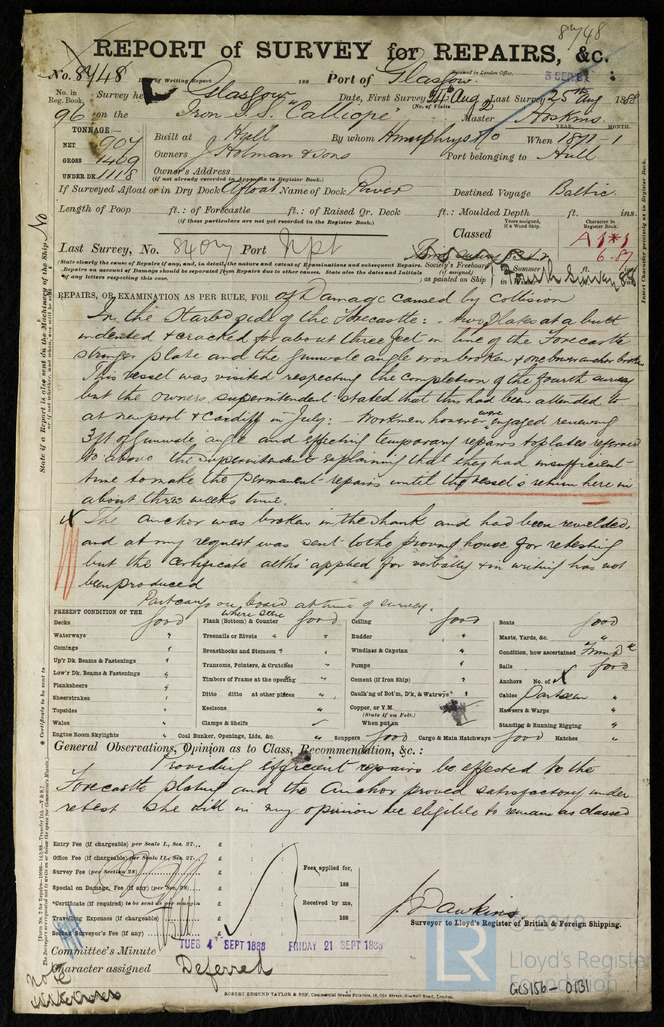 8748
REPORT of SURVEY for REPAIRS, &c.
No. 8748 Date of Writing Report 188 Port of Glasgow Received in London Office, 3 SEP 88
No. in Reg. Book. Survey held Glasgow Date, First Survey Aug Last Survey 25th Aug 1888
(No. of Visits 2)
96 on the Iron S.S. "Calliope" Master Hoskins
TONNAGE:— YEAR. MONTH.
NET 907 Built at Hull By whom Humphrys & Co When 1871-1
GROSS 1409 Owners J Holman & Sons Port belonging to Hull
UNDER DK. 1118 Owner's Address
(If not already recorded in Appendix to Register Book.)
If Surveyed Afloat or in Dry Dock Afloat Name of Dock River Destined Voyage Baltic
Length of Poop ft.: of Forecastle ft.: of Raised Qr. Deck ft.: Moulded Depth ft. ins.
(If these particulars are not yet recorded in the Register Book.)
Years assigned, if a Wood Ship. Character in Register Book.
Classed A 1 * 1
Last Survey, No. 8407 Port Npt 6.87
Society's Freeboard (if assigned) as painted on Ship Summer ft.
REPAIRS, OR EXAMINATION AS PER RULE, FOR of Damage caused by collision
In the Starbd side of the Forecastle: two plates at a butt
indented & cracked for about three feet in line of the Forecastle
stringer plate and the Gunwale angle iron broken & one bower anchor broken
This vessel was visited respecting the completion of the fourth survey
but the owners superintendent stated that this had been attended to
at newport & Cardiff in July:— Workmen however were engaged renewing
3 ft of Gunwale angle and effecting temporary repairs to plates referred
to above the Superintendent explaining that they had insufficient
time to make the permanent repairs until the vessel's return here in
about three weeks time.
X The anchor was broken in the shank and had been rewelded,
and at my request was sent to the proving house for retesting
but the certificate altho applied for verbally & in writing has not
been produced
Part cargo on board at time of survey.
PRESENT CONDITION OF THE where seen
Decks good Plank (Bottom) & Counter good Ceiling good Boats good
Waterways " Treenails or Rivets " Rudder " Masts, Yards, &c. "
Comings " Breasthooks and Stemson " Windlass & Capstan " Condition, how ascertained
Up'r Dk. Beams & Fastenings " Transoms, Pointers, & Crutches " Pumps " Sails good
Low'r Dk. Beams & Fastenings " Timbers of Frame at the opening " Cement (if Iron Ship) " Anchors No. of X
Planksheers " Ditto ditto at other places " Caulk'g of Bot'm, D'k, & Waterw'ys " Cables Part seen
Sheerstrakes " Keelsons " Copper, or Y.M. (State if on Felt.) Hawsers & Warps "
Topsides " Clamps & Shelfs When put on Standing & Running Rigging "
Wales "
Engine Room Skylights " Coal Bunker, Openings, Lids, &c. " Scuppers good Cargo & Main Hatchways good Hatches "
General Observations, Opinion as to Class, Recommendation, &c.:
Providing efficient repairs be effected to the
Forecastle plating and the Anchor proved satisfactory under
retest She will in my opinion be eligible to remain as classed
Entry Fee (if chargeable) per Scale I., Sec. 27... £ : :
Office Fee (if chargeable) per Scale II., Sec. 27... £ : :
Survey Fee (Section 28) £ : : Fees applied for, 188
Special on Damage, Fee (if any) (per Sec. 28) £ : :
*Certificate (if required) to be sent as per margin £ : : Received by me, 188
Travelling Expenses (if chargeable) £ : :
Second Surveyor's Fee (if any) £ : :
J. Dawkins.
Surveyor to Lloyd's Register of British & Foreign Shipping.
Committee's Minute TUES 4 SEPT 1888 FRIDAY 21 SEPT 1888
Character assigned Deferred
ROBERT EDMUND TAYLOR & SON, Commercial Steam Printers, 19, Old Street, Goswell Road, London.
LR Lloyd's Register Foundation
GLS156-0131